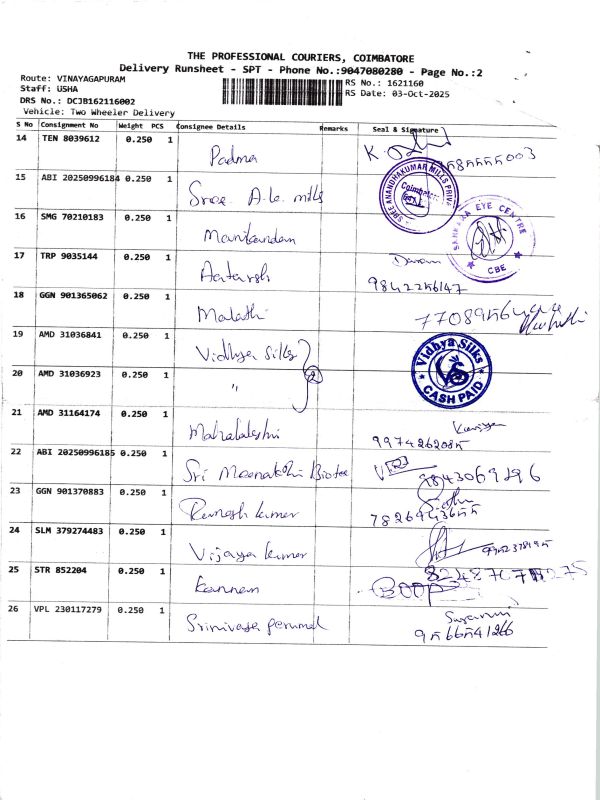 THE PROFESSIONAL COURIERS, COIMBATORE
Delivery Runsheet - SPT - Phone No.:9047080280 - Page No.:2
Route: VINAYAGAPURAM
RS No.: 1621160
Staff: USHA
RS Date: 03-Oct-2025
DRS No.: DCJB162116002
Vehicle: Two Wheeler Delivery
S No Consignment No Weight PCS Consignee Details Remarks Seal & Signature
14 TEN 8039612 0.250 1 Padma
15 ABI 20250996184 0.250 1 Sree A.K. mills
SREE ANANDHAKUMAR MILLS PRIV
Coimbatore
16 SMG 70210183 0.250 1 Manikandan
SANKARA EYE CENTRE
CBE
17 TRP 9035144 0.250 1 Aatarsh
9842256147
18 GGN 901365062 0.250 1 Malathi
19 AMD 31036841 0.250 1 Vidhya Silks
Vidhya Silks
VS
CASH PAID
20 AMD 31036923 0.250 1 " 2
21 AMD 31164174 0.250 1 Mahalakshmi
22 ABI 20250996185 0.250 1 Sri Meenakshi Biotec
23 GGN 901370883 0.250 1 Ramesh kumar
24 SLM 379274483 0.250 1 Vijaya kumar
25 STR 852204 0.250 1 Kannan
26 VPL 230117279 0.250 1 Srinivasa perumal
9566541266